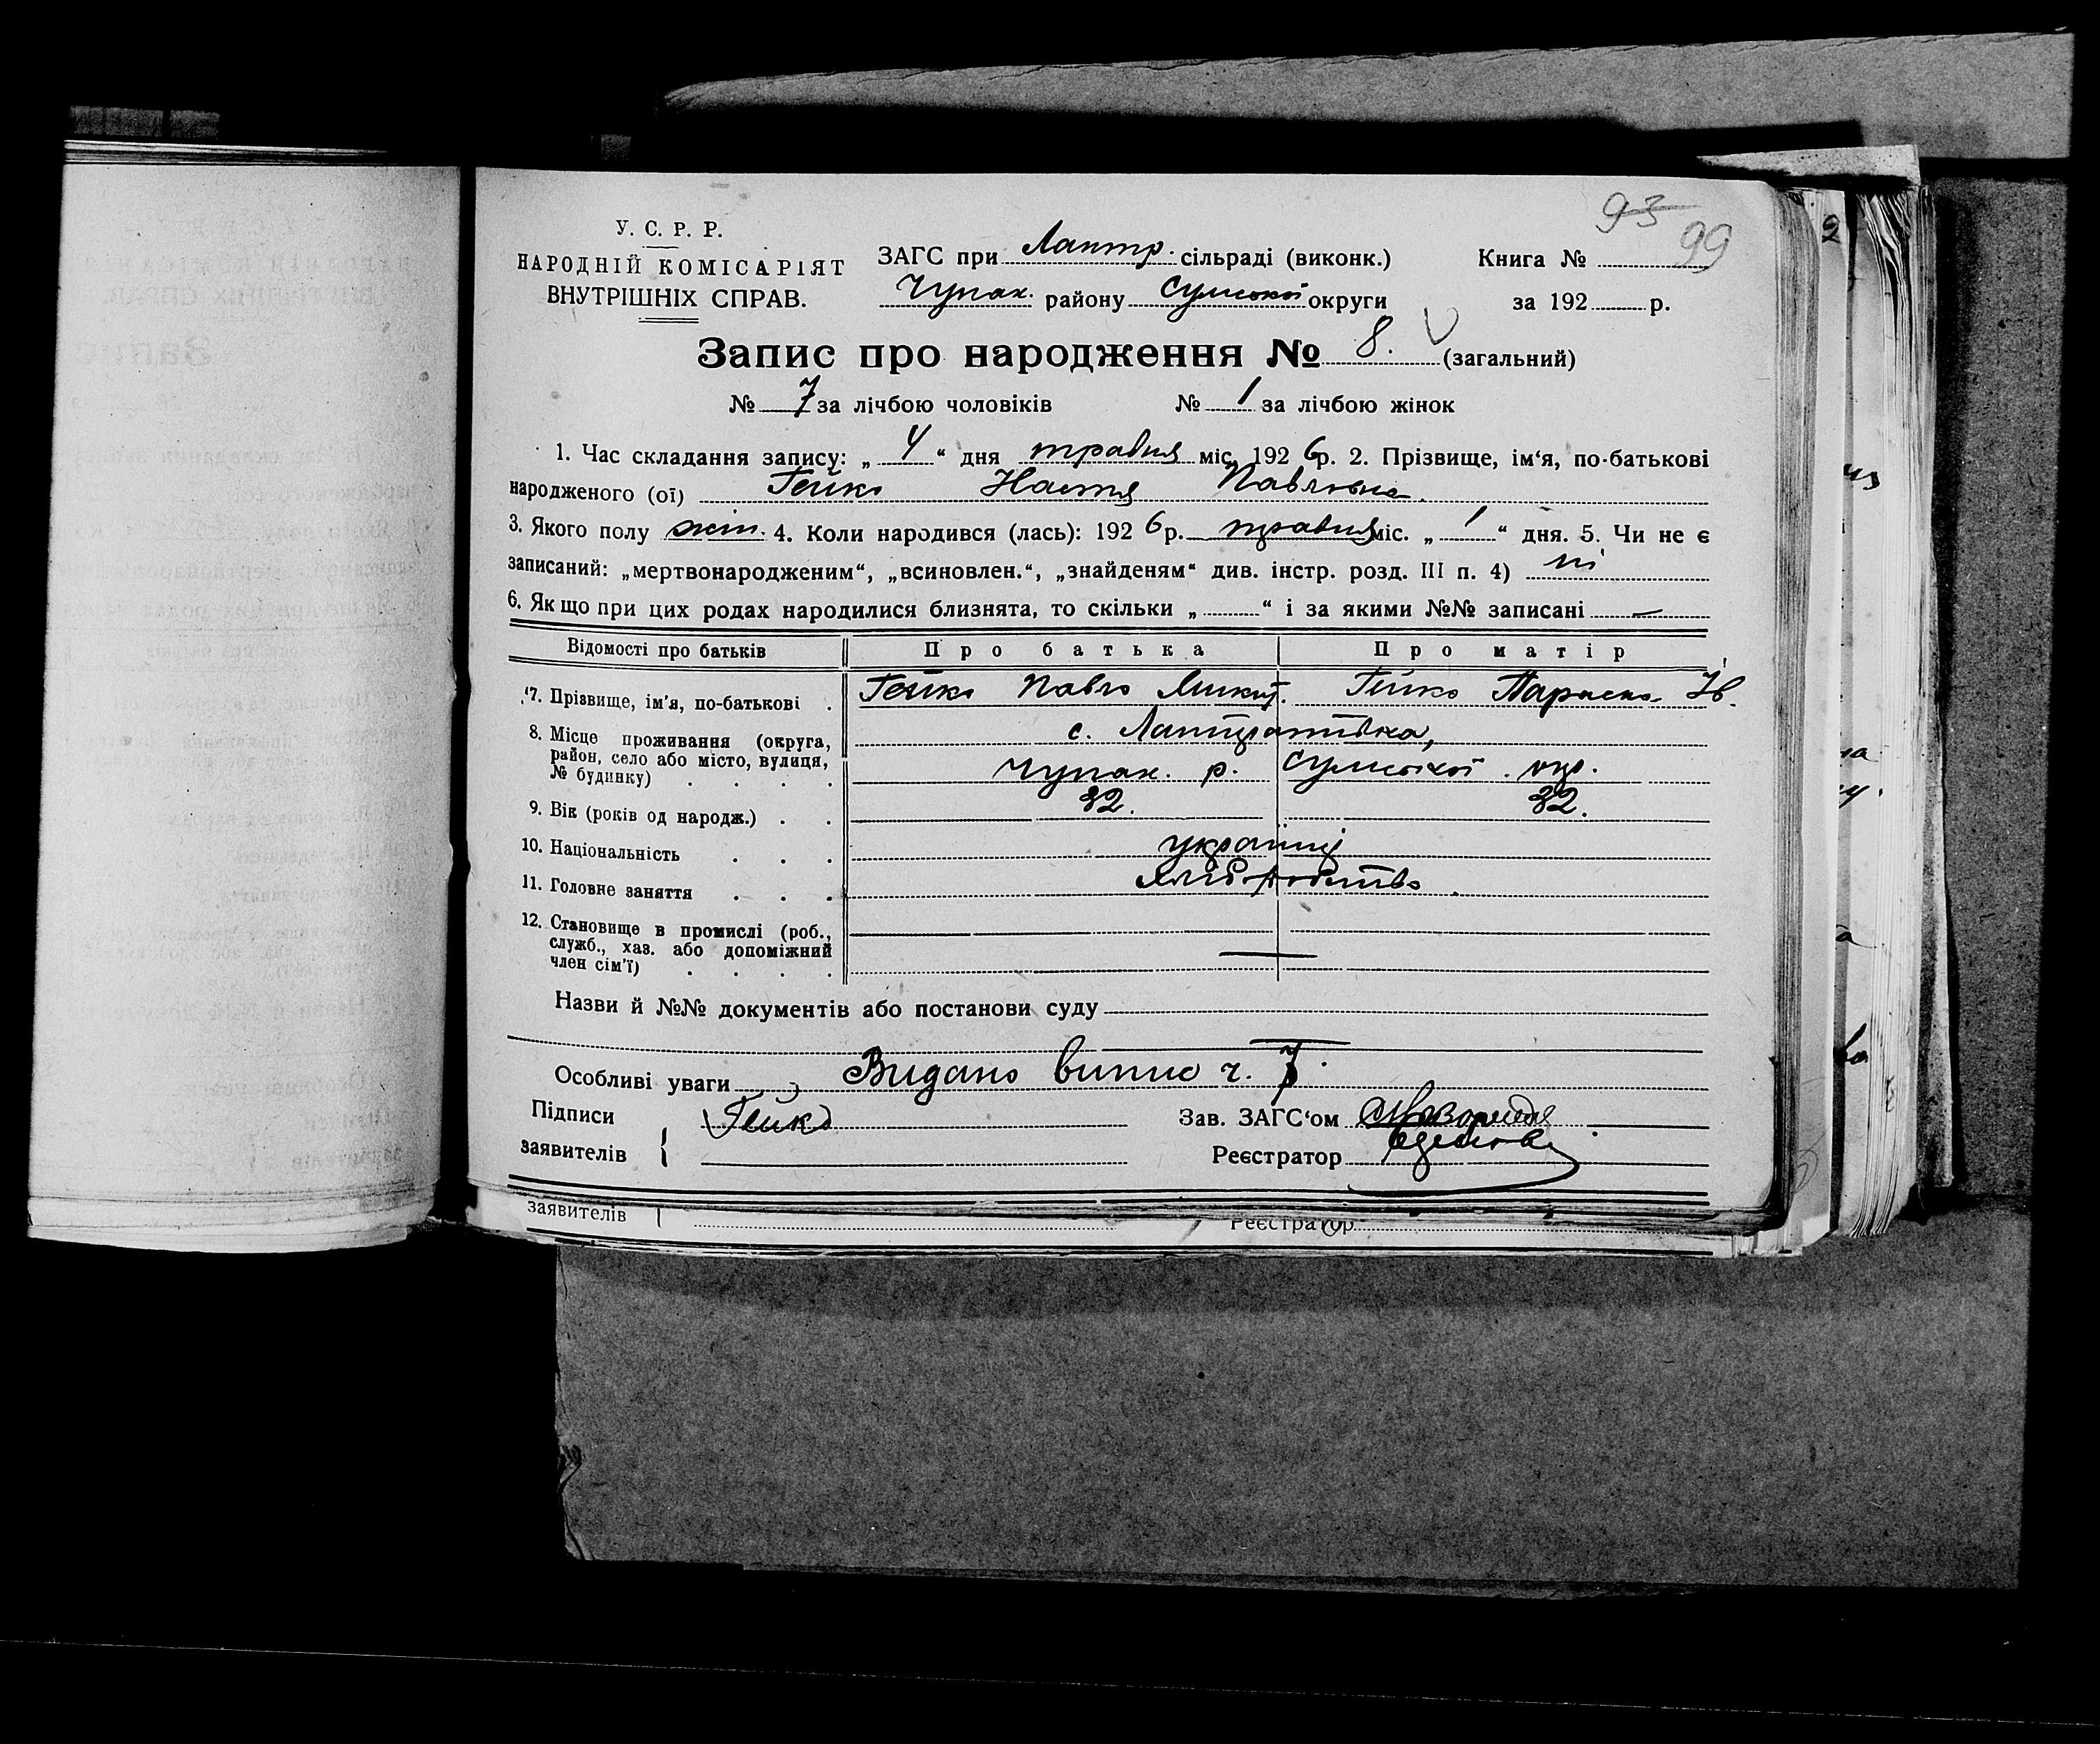 93 99
У. С. Р. Р.
НАРОДНІЙ КОМІСАРІЯТ
ВНУТРІШНІХ СПРАВ.
ЗАГС при Лантр. сільраді (виконк.)
Чупах. району Сумської округи
Книга №
за 192 р.
Запис про народження № 8. (загальний)
№ 7 за лічбою чоловіків № 1 за лічбою жінок
1. Час складання запису: „ 4 “ дня травня міс. 192 6 р. 2. Прізвище, ім‘я, по-батькові
народженого (ої) Гейко Настя Павловна.
3. Якого полу жін. 4. Коли народився (лась): 192 6 р. травня міс. „ 1 “ дня. 5. Чи не є
записаний: „мертвонародженим“, „всиновлен.“, „знайденям“ див. інстр. розд. III п. 4) ні
6. Якщо при цих родах народилися близнята, то скільки „ “ і за якими №№ записані —
Відомості про батьків Про батька Про матір
7. Прізвище, ім‘я, по-батькові . Гейко Павло Микит. Гейко Параска Ів.
8. Місце проживання (округа, с.
район, село або місто, вулиця,
№ будинку) . . . . Чупах. р. Сумської окр.
9. Вік (років од народж.) . . 32. 32.
10. Національність . . . українці
11. Головне заняття . . . хліборобство.
12. Становище в промислі (роб.,
служб., хаз. або допоміжний —
член сім‘ї) . . . .
Назви й №№ документів або постанови суду
Особливі уваги Видано випис ч. 7.
Підписи Гейко Зав. ЗАГС‘ом
заявителів { Реєстратор
заявителів Реєстратор